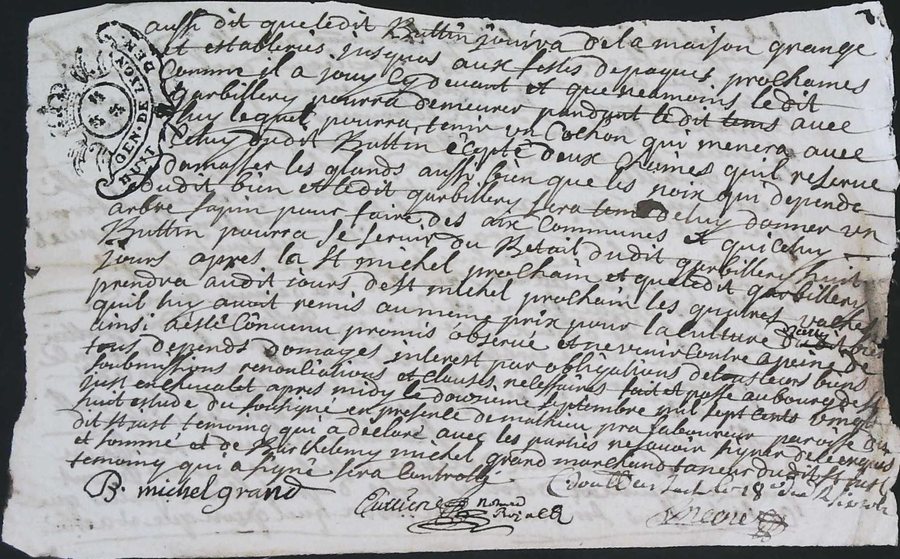 GEN. DE LION
HUIT DEN
aussy dit que ledit Buttin jouira de la maison grange
et estableries jusques aux festes de paques prochaines
comme il a jouy cy devant et que neamoins ledit
garbillery pourra demeurer pendant ledit tems avec
luy lequel pourra tenir un cochon qui menera avec
celuy dudit Buttin écepté deux chaines quil reserve
damasser les glands aussi bien que les noix qui depende
dudit bien et ledit garbillery sera tenu de luy donner un
arbre sapin pour faire des aix communes et qui celuy
Buttin pourra se servir du Betail dudit garbillery huit
jours apres la St michel prochain et que ledit garbillery
prendra audit jours de St michel prochain les quatres vaches
quil luy avoit remis au meme prix pour la culture
ainsi a esté convenu promis observé et ne venir contre a peine de
tous depends domages interest par obligations de tous leurs biens
soubmissions renontiations et clauses necessaires fait et passé au bourg de St
just en chevalet apres midy le douzieme septembre mil sept cents vingt
huit estude du soussigné en présence de mathieu pra laboureur paroisse du
dit St just temoing qui a déclaré avec les parties ne savoir signer de ce enquis
et sommé et de Barthelemy michel grand marchand taneur dudit St just
temoing qui a signé sera controllé
B. michel grand